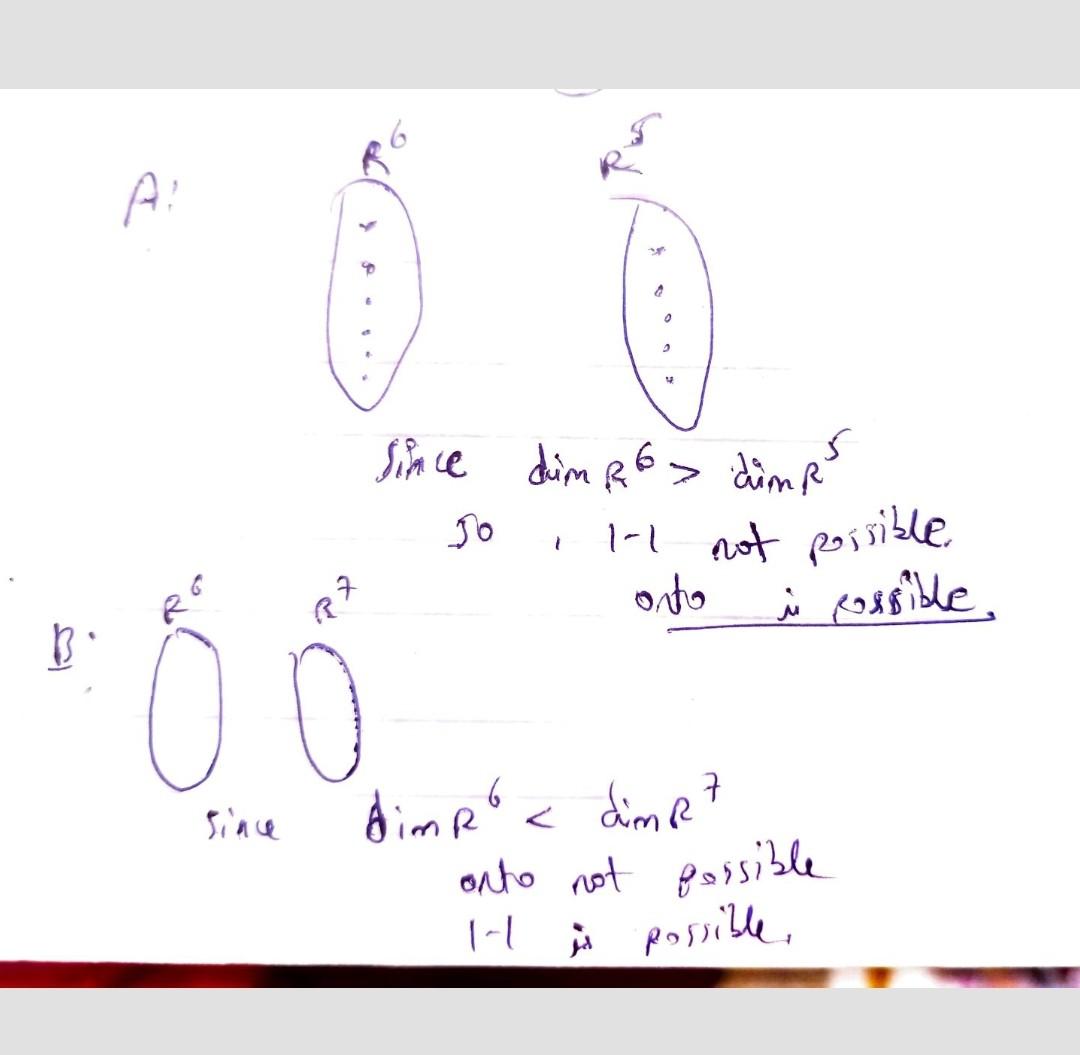 A:
R⁶ R⁵
Since dim R⁶ > dim R⁵
So, 1-1 not possible.
onto is possible.
B.
R⁶ R⁷
Since dim R⁶ < dim R⁷
onto not possible
1-1 is possible.